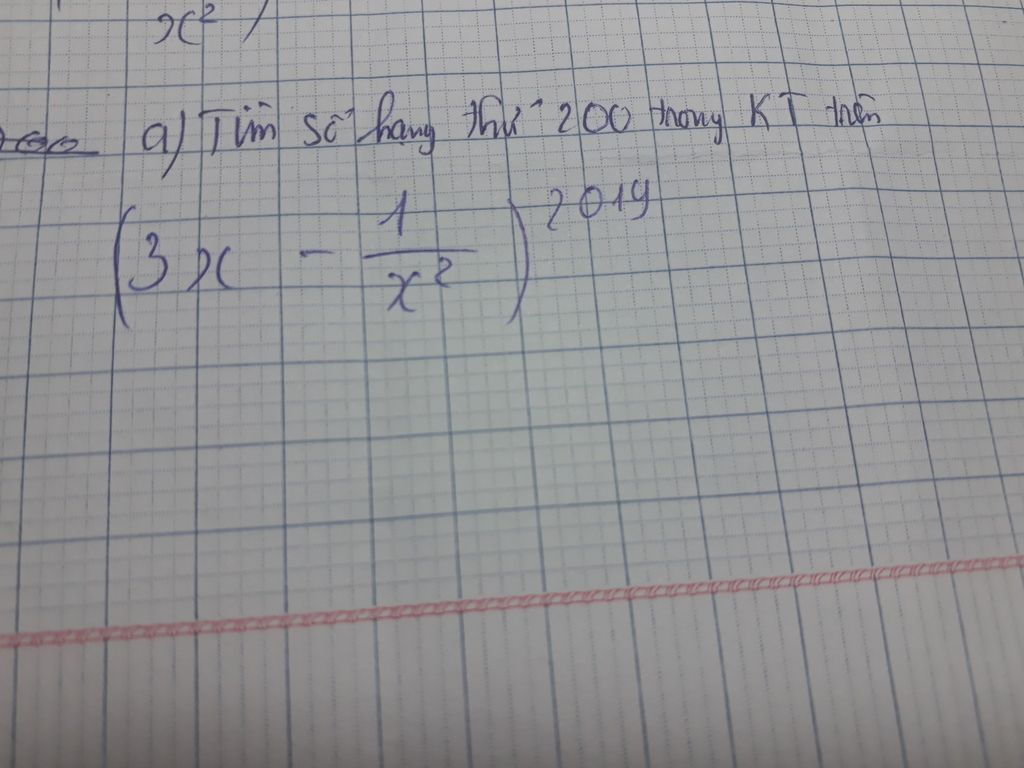 x²)
a) Tìm số hạng thứ 200 trong KT trên
(3x - 1/x²)²⁰¹⁹